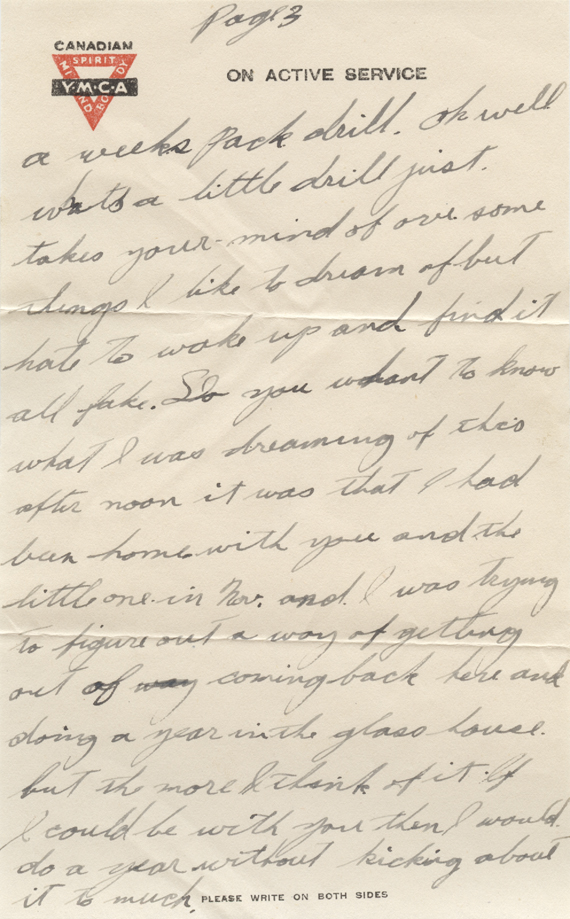 Page 3
CANADIAN
SPIRIT
MIND BODY
Y·M·C·A
ON ACTIVE SERVICE
a weeks pack drill. Oh well
whats a little drill just.
takes your mind of ove some
things I like to dream of but
hate to wake up and find it
all fake. Do you whant to know
what I was dreaming of this
after noon it was that I had
been home with you and the
little one in Nov. and I was trying
to figure out a way of getting
out of way coming back here and
doing a year in the glass house.
but the more I think of it. If
I could be with you then I would
do a year without kicking about
it to much.
PLEASE WRITE ON BOTH SIDES